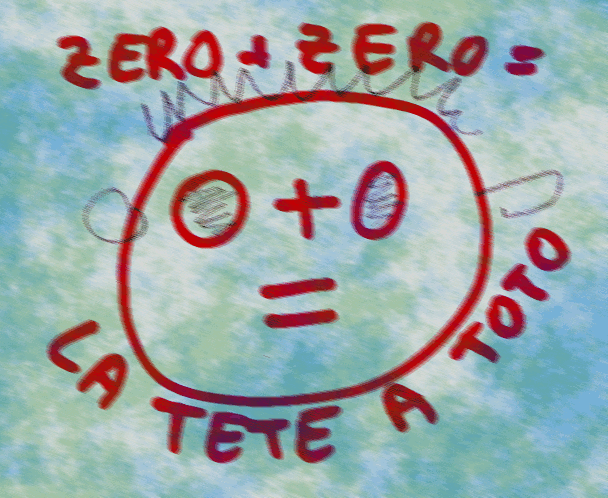 ZERO + ZERO =
0 + 0
=
LA TETE A TOTO